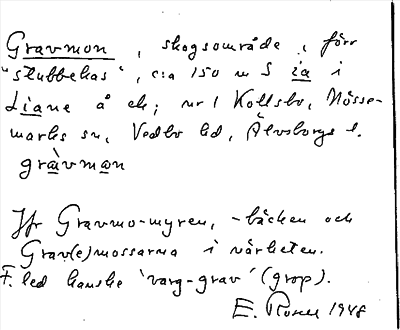 Gravmon, skogsområde, förr
"stubbekas", c:a 150 m S ia i
Liane å ek; nr 1 Kollsbo, Nösse-
marks sn, Vedbo hd, Älvsborgs l.
gràvmạn
Jfr Gravmo-myren, -bäcken och
Grav(e)mossarna i närheten.
F. led kanske 'varg-grav' (grop).
E. Rosell 1948